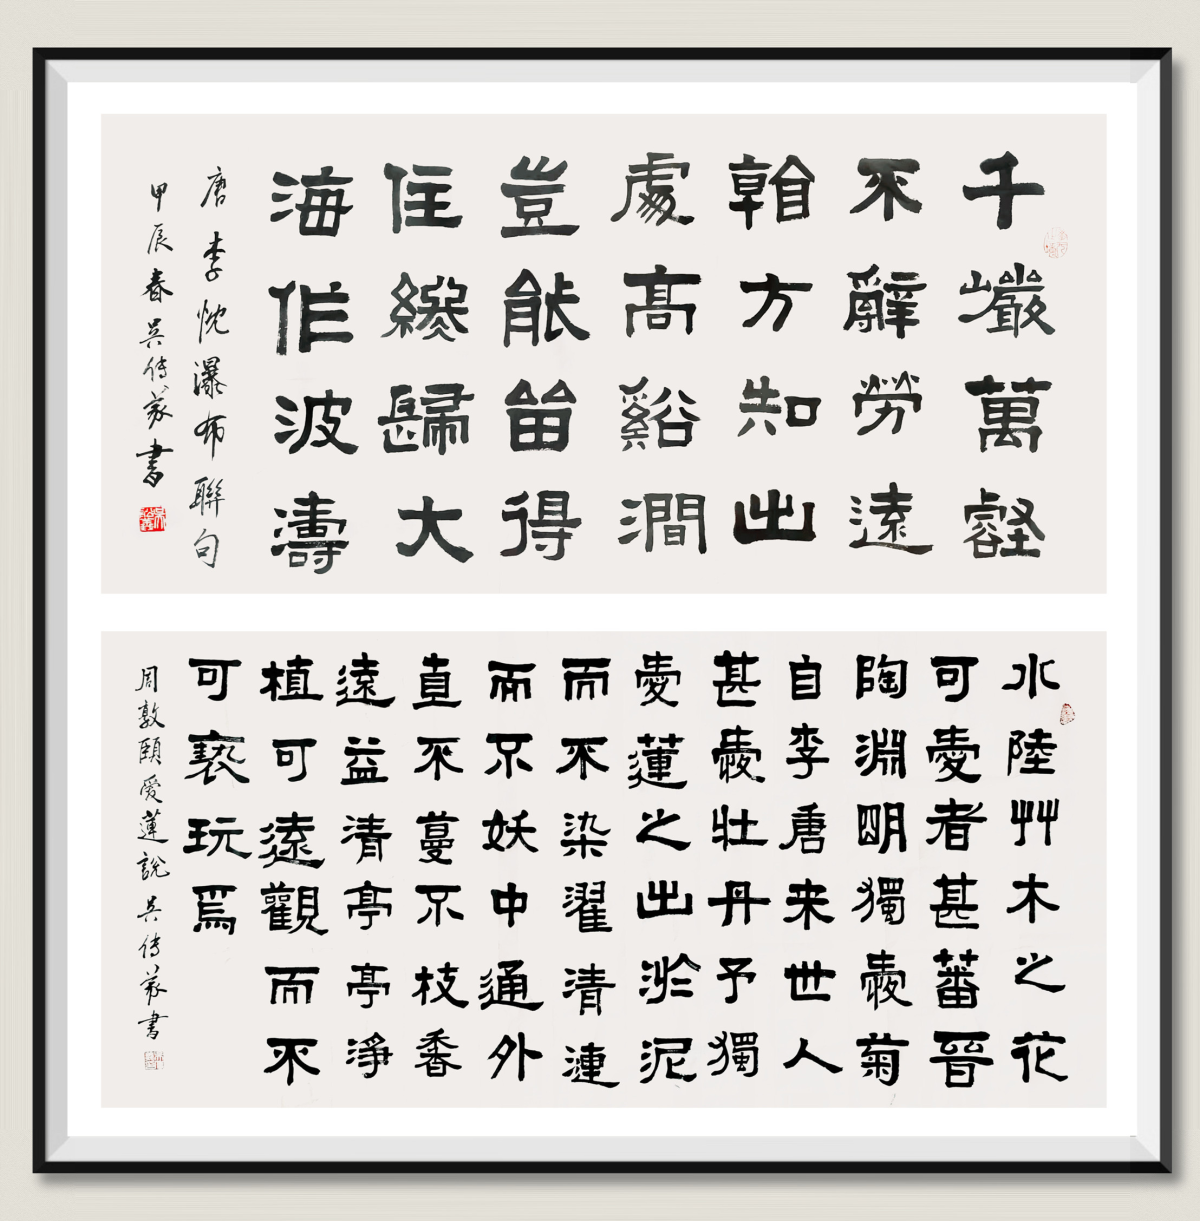 千巖萬壑
不辭勞遠
看方知出
處高谿澗
豈能留得
住終歸大
海作波濤
唐李忱瀑布聯句
甲辰春吴傳書
水陸艸木之花
可愛者甚蕃晉
陶淵明獨愛菊
自李唐来世人
甚愛牡丹予獨
愛蓮之出淤泥
而不染濯清漣
而不妖中通外
直不蔓不枝香
遠益清亭亭淨
植可遠觀而不
可褻玩焉
周敦頤愛蓮說吴傳書